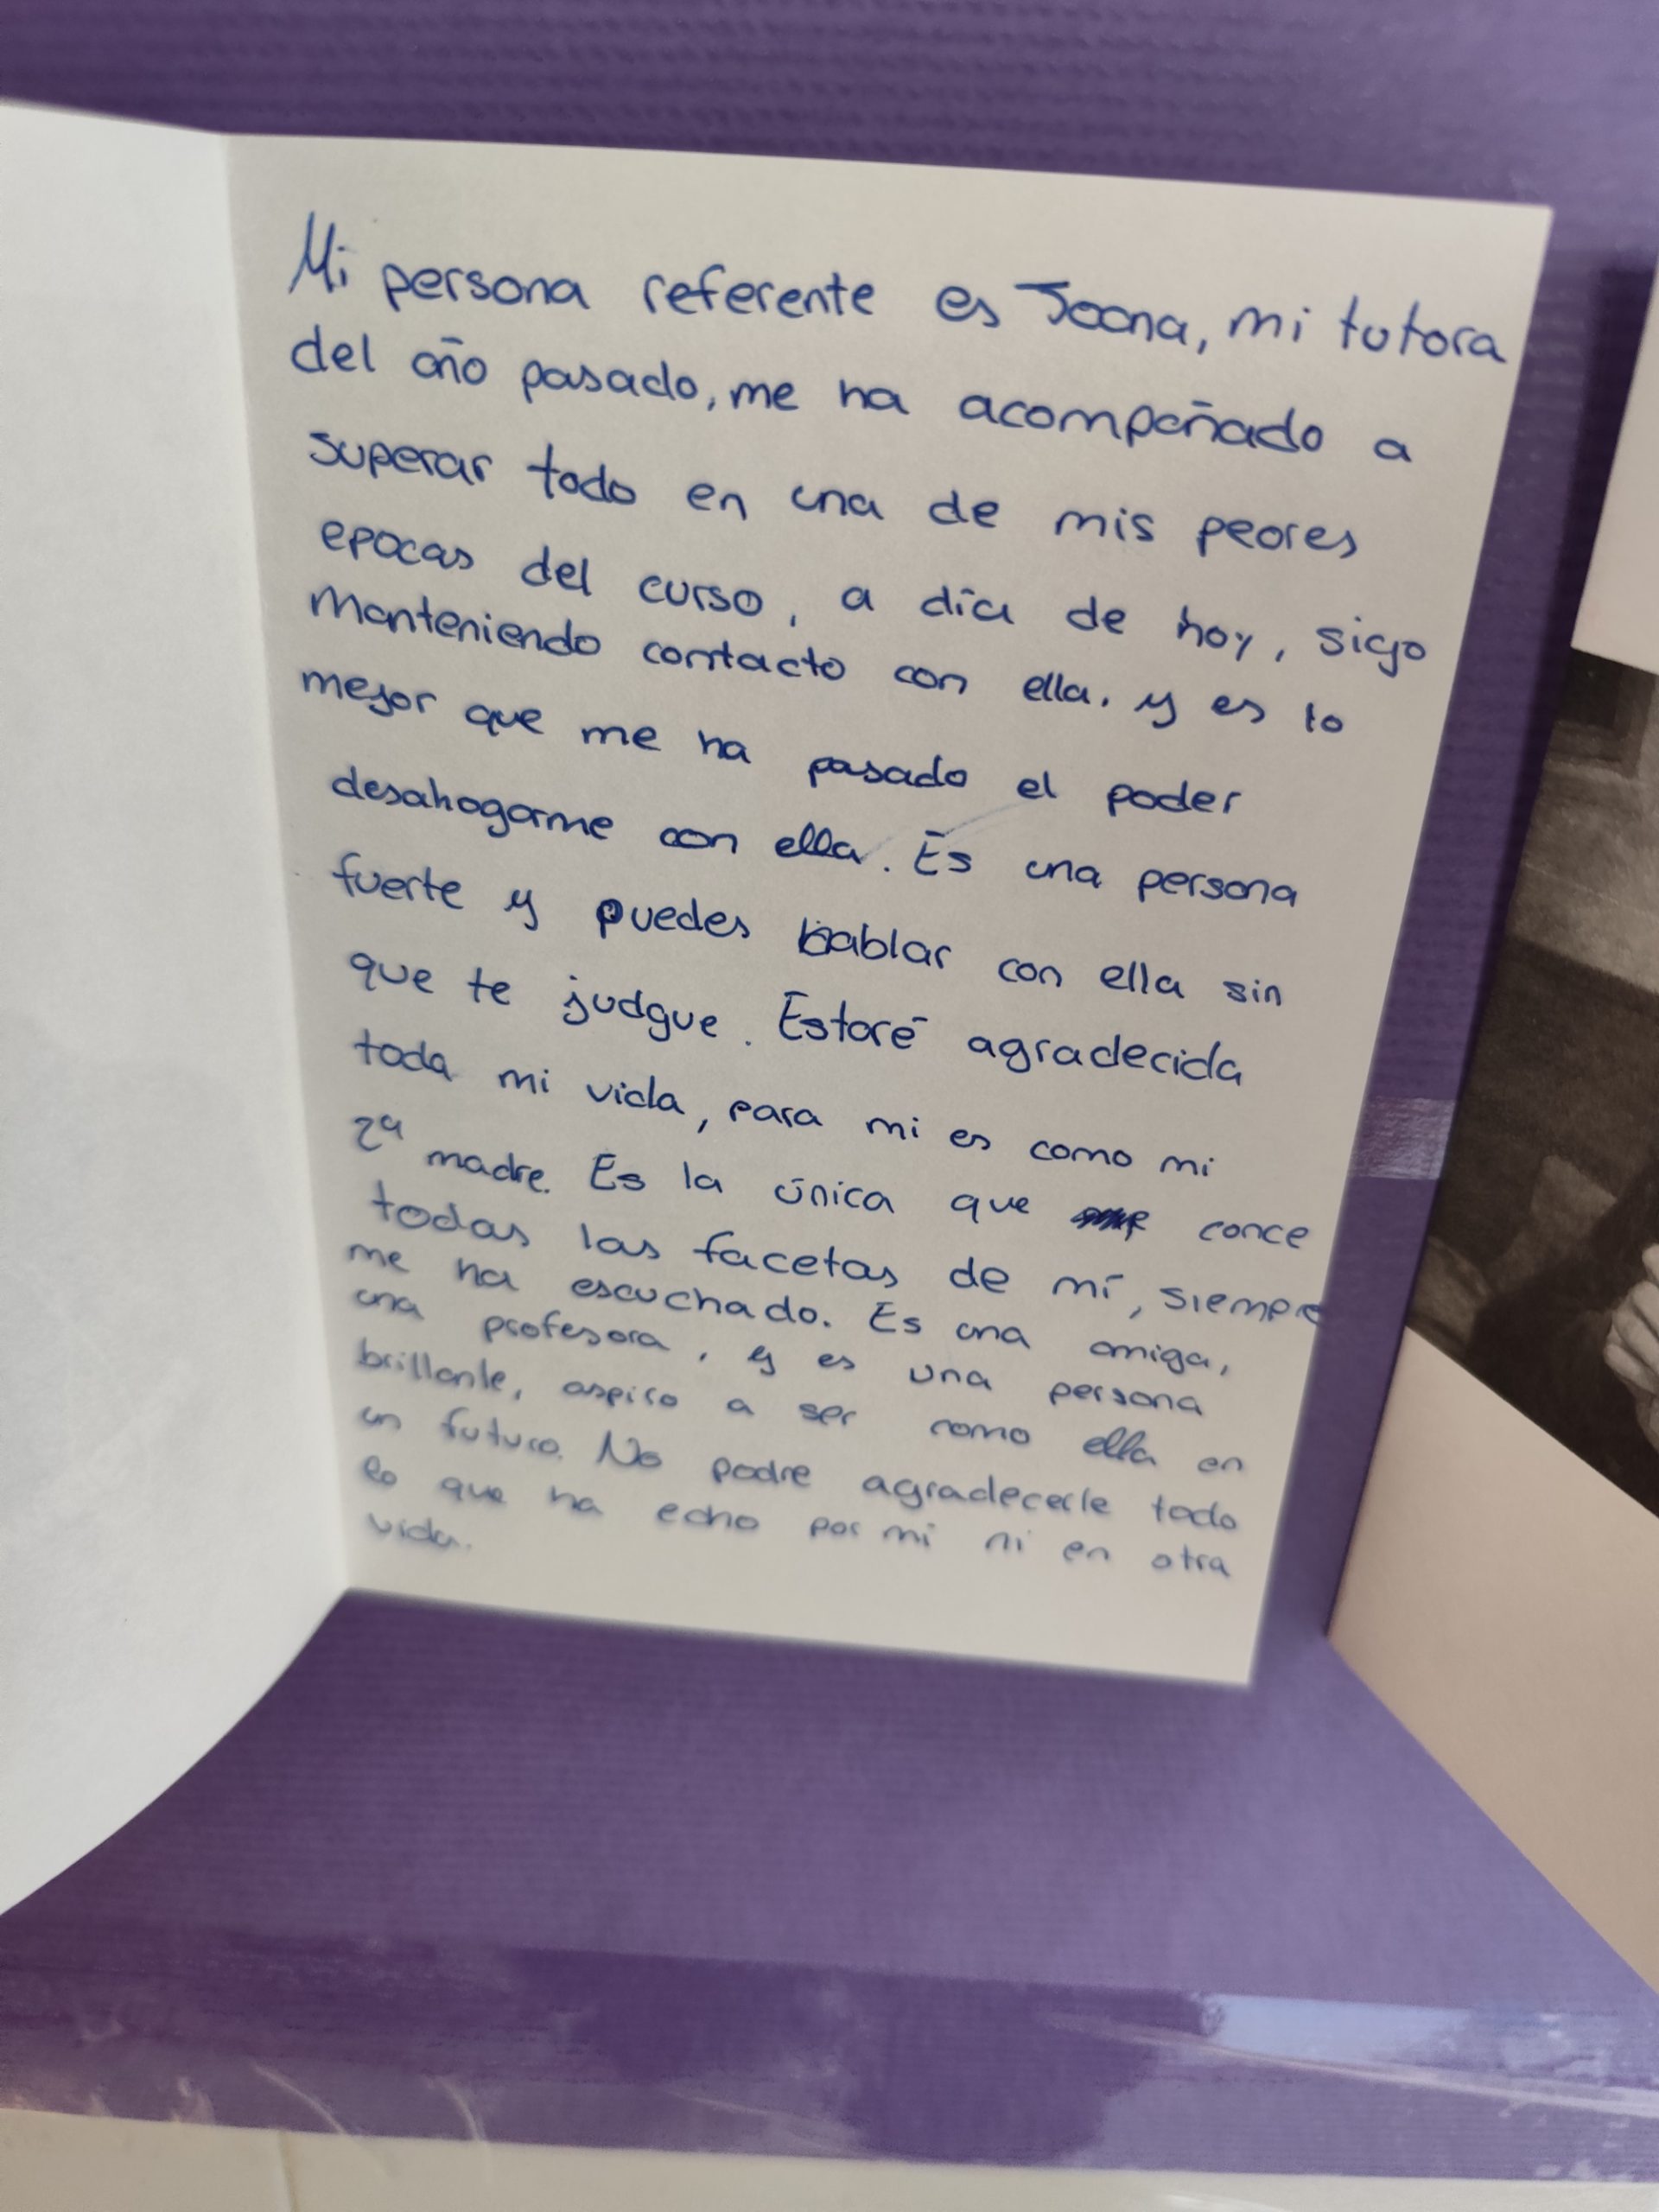 Mi persona referente es Joana, mi tutora
del año pasado, me ha acompañado a
superar todo en una de mis peores
epocas del curso, a día de hoy, sigo
manteniendo contacto con ella. y es lo
mejor que me ha pasado el poder
desahogarme con ella. Es una persona
fuerte y puedes hablar con ella sin
que te judgue. Estaré agradecida
toda mi vida, para mi es como mi
2ª madre. Es la única que conce
todas las facetas de mí, siempre
me ha escuchado. Es una amiga,
una profesora, y es una persona
brillante, aspiro a ser como ella en
un futuro. No podre agradecerle todo
lo que ha echo por mi ni en otra
vida.